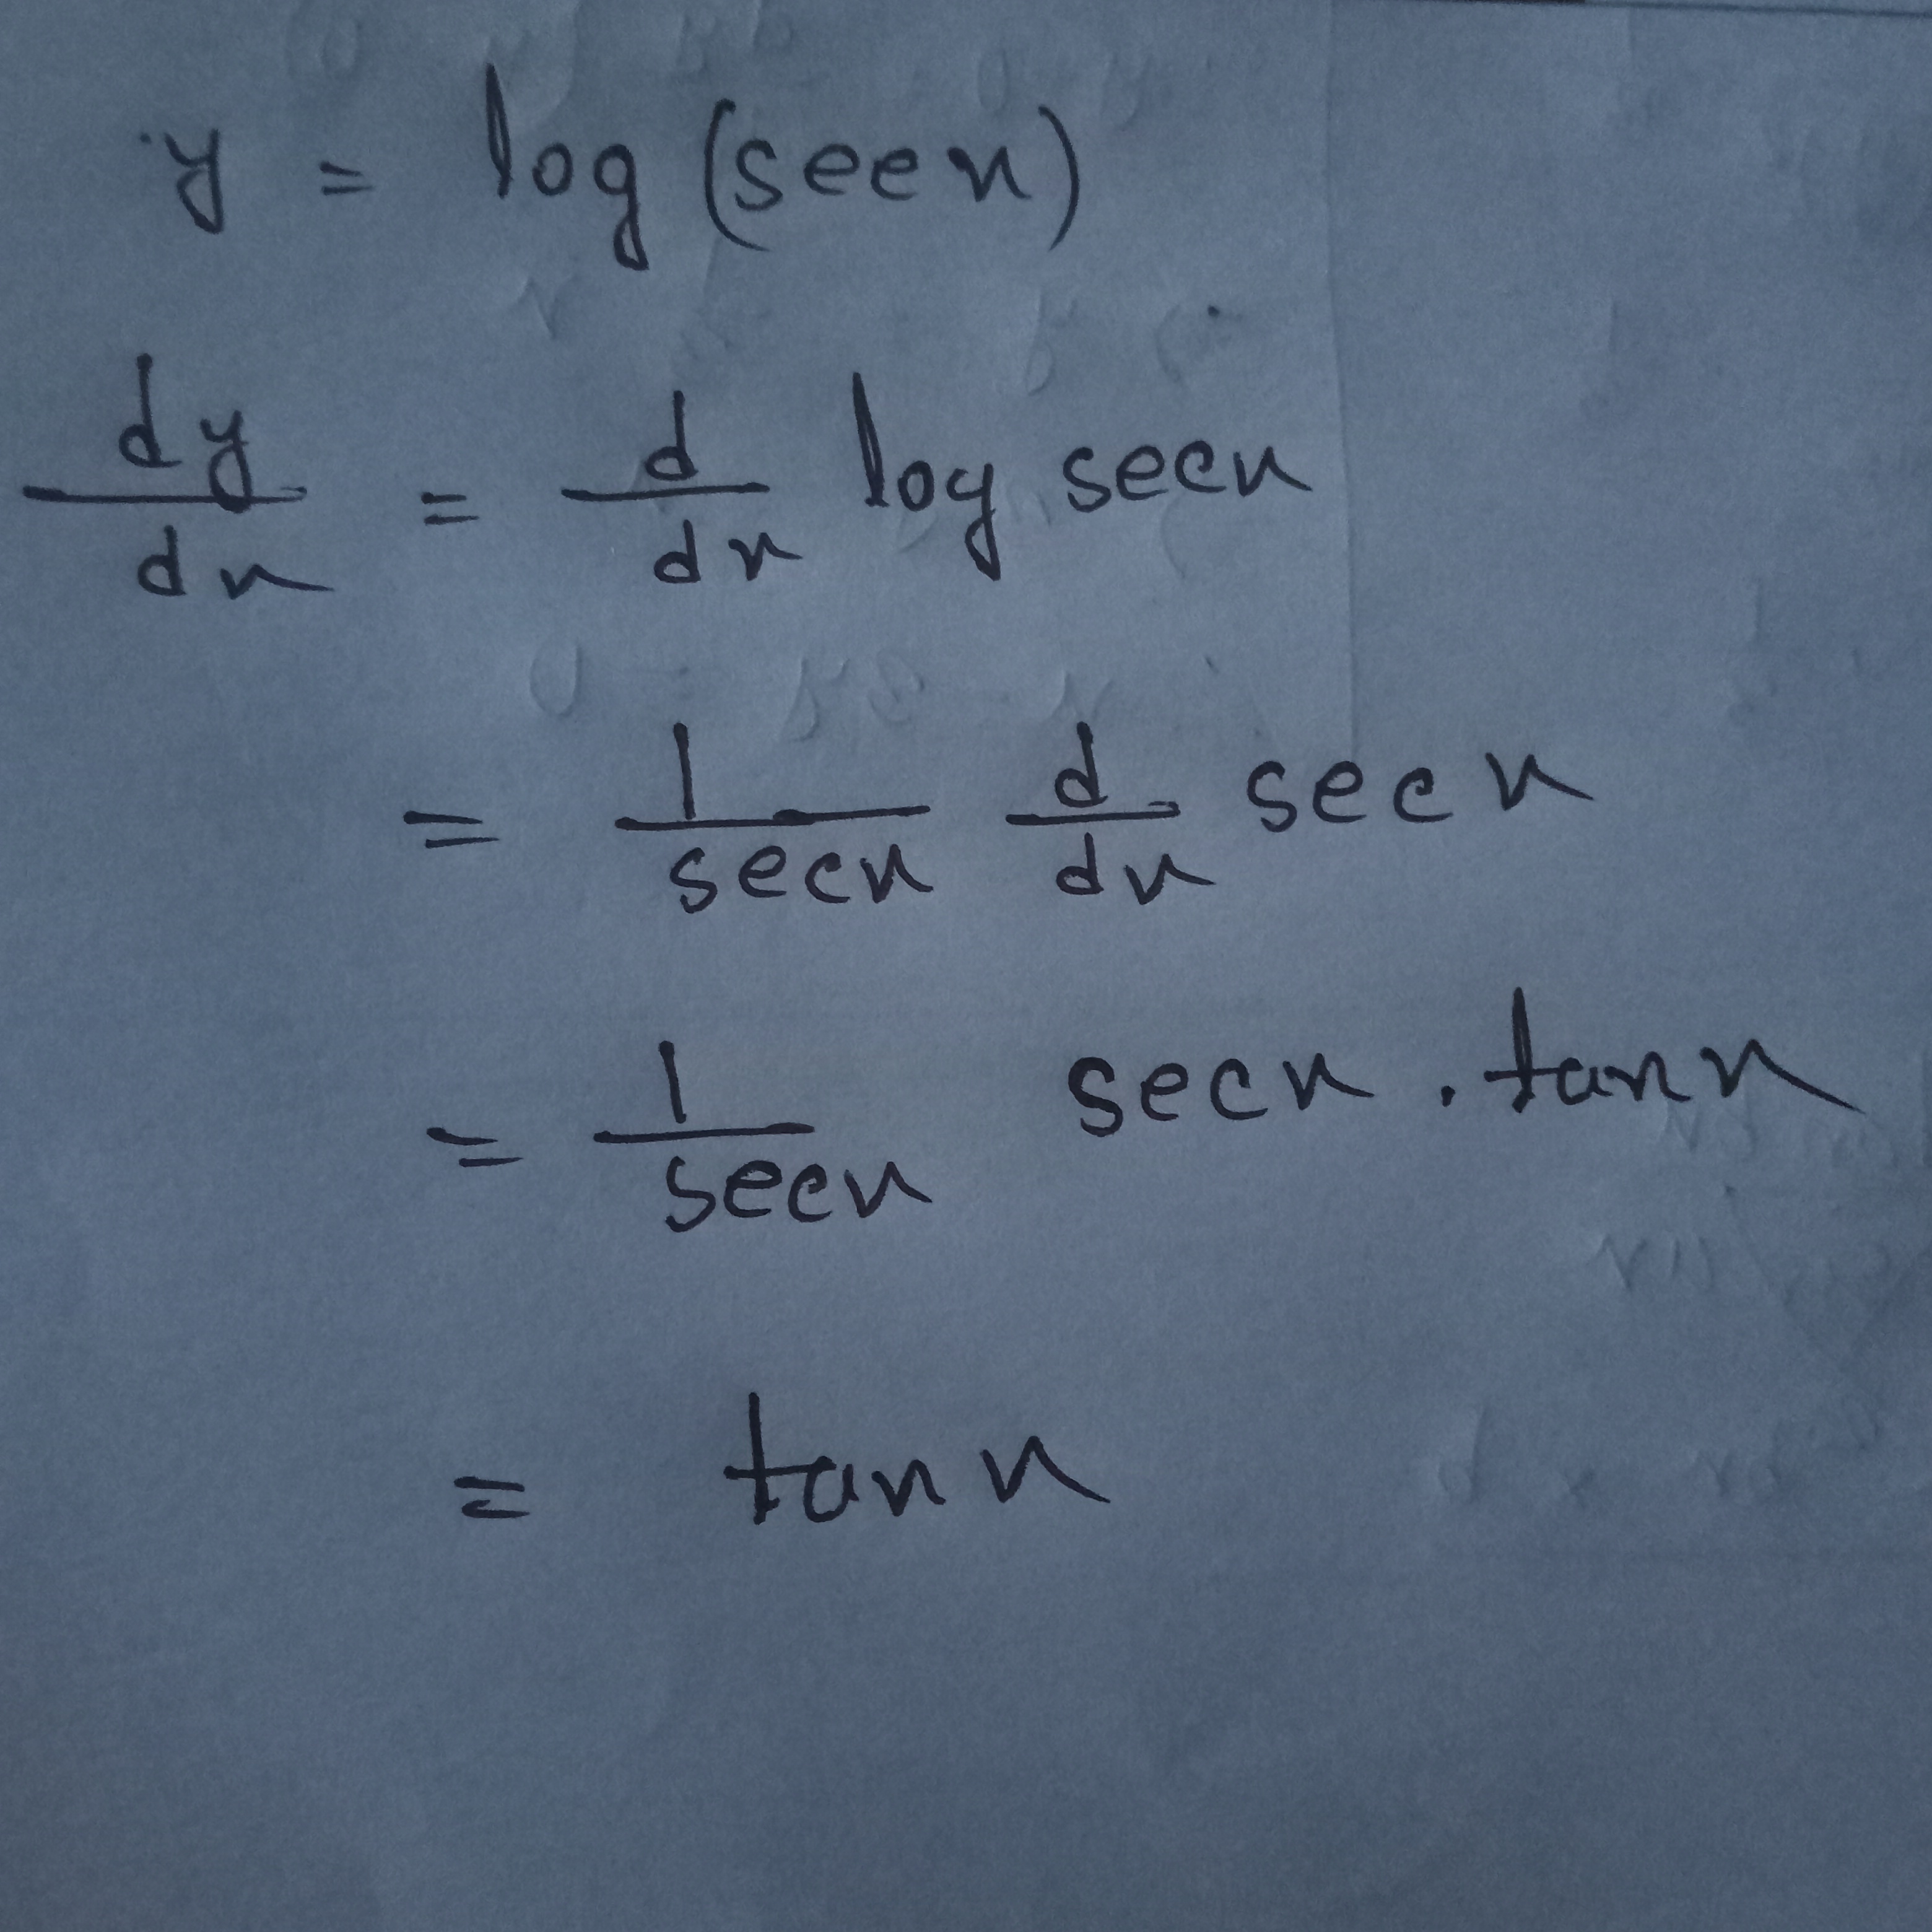 y = log (sec x)
dy/dx = d/dx log sec x
= 1/sec x d/dx sec x
= 1/sec x sec x . tan x
= tan x